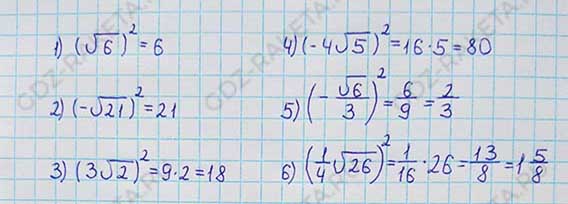 1) (√6)² = 6
2) (-√21)² = 21
3) (3√2)² = 9·2 = 18
4) (-4√5)² = 16·5 = 80
5) (-√6/3)² = 6/9 = 2/3
6) (1/4 √26)² = 1/16 · 26 = 13/8 = 1 5/8
GDZ-RAKETA.RU